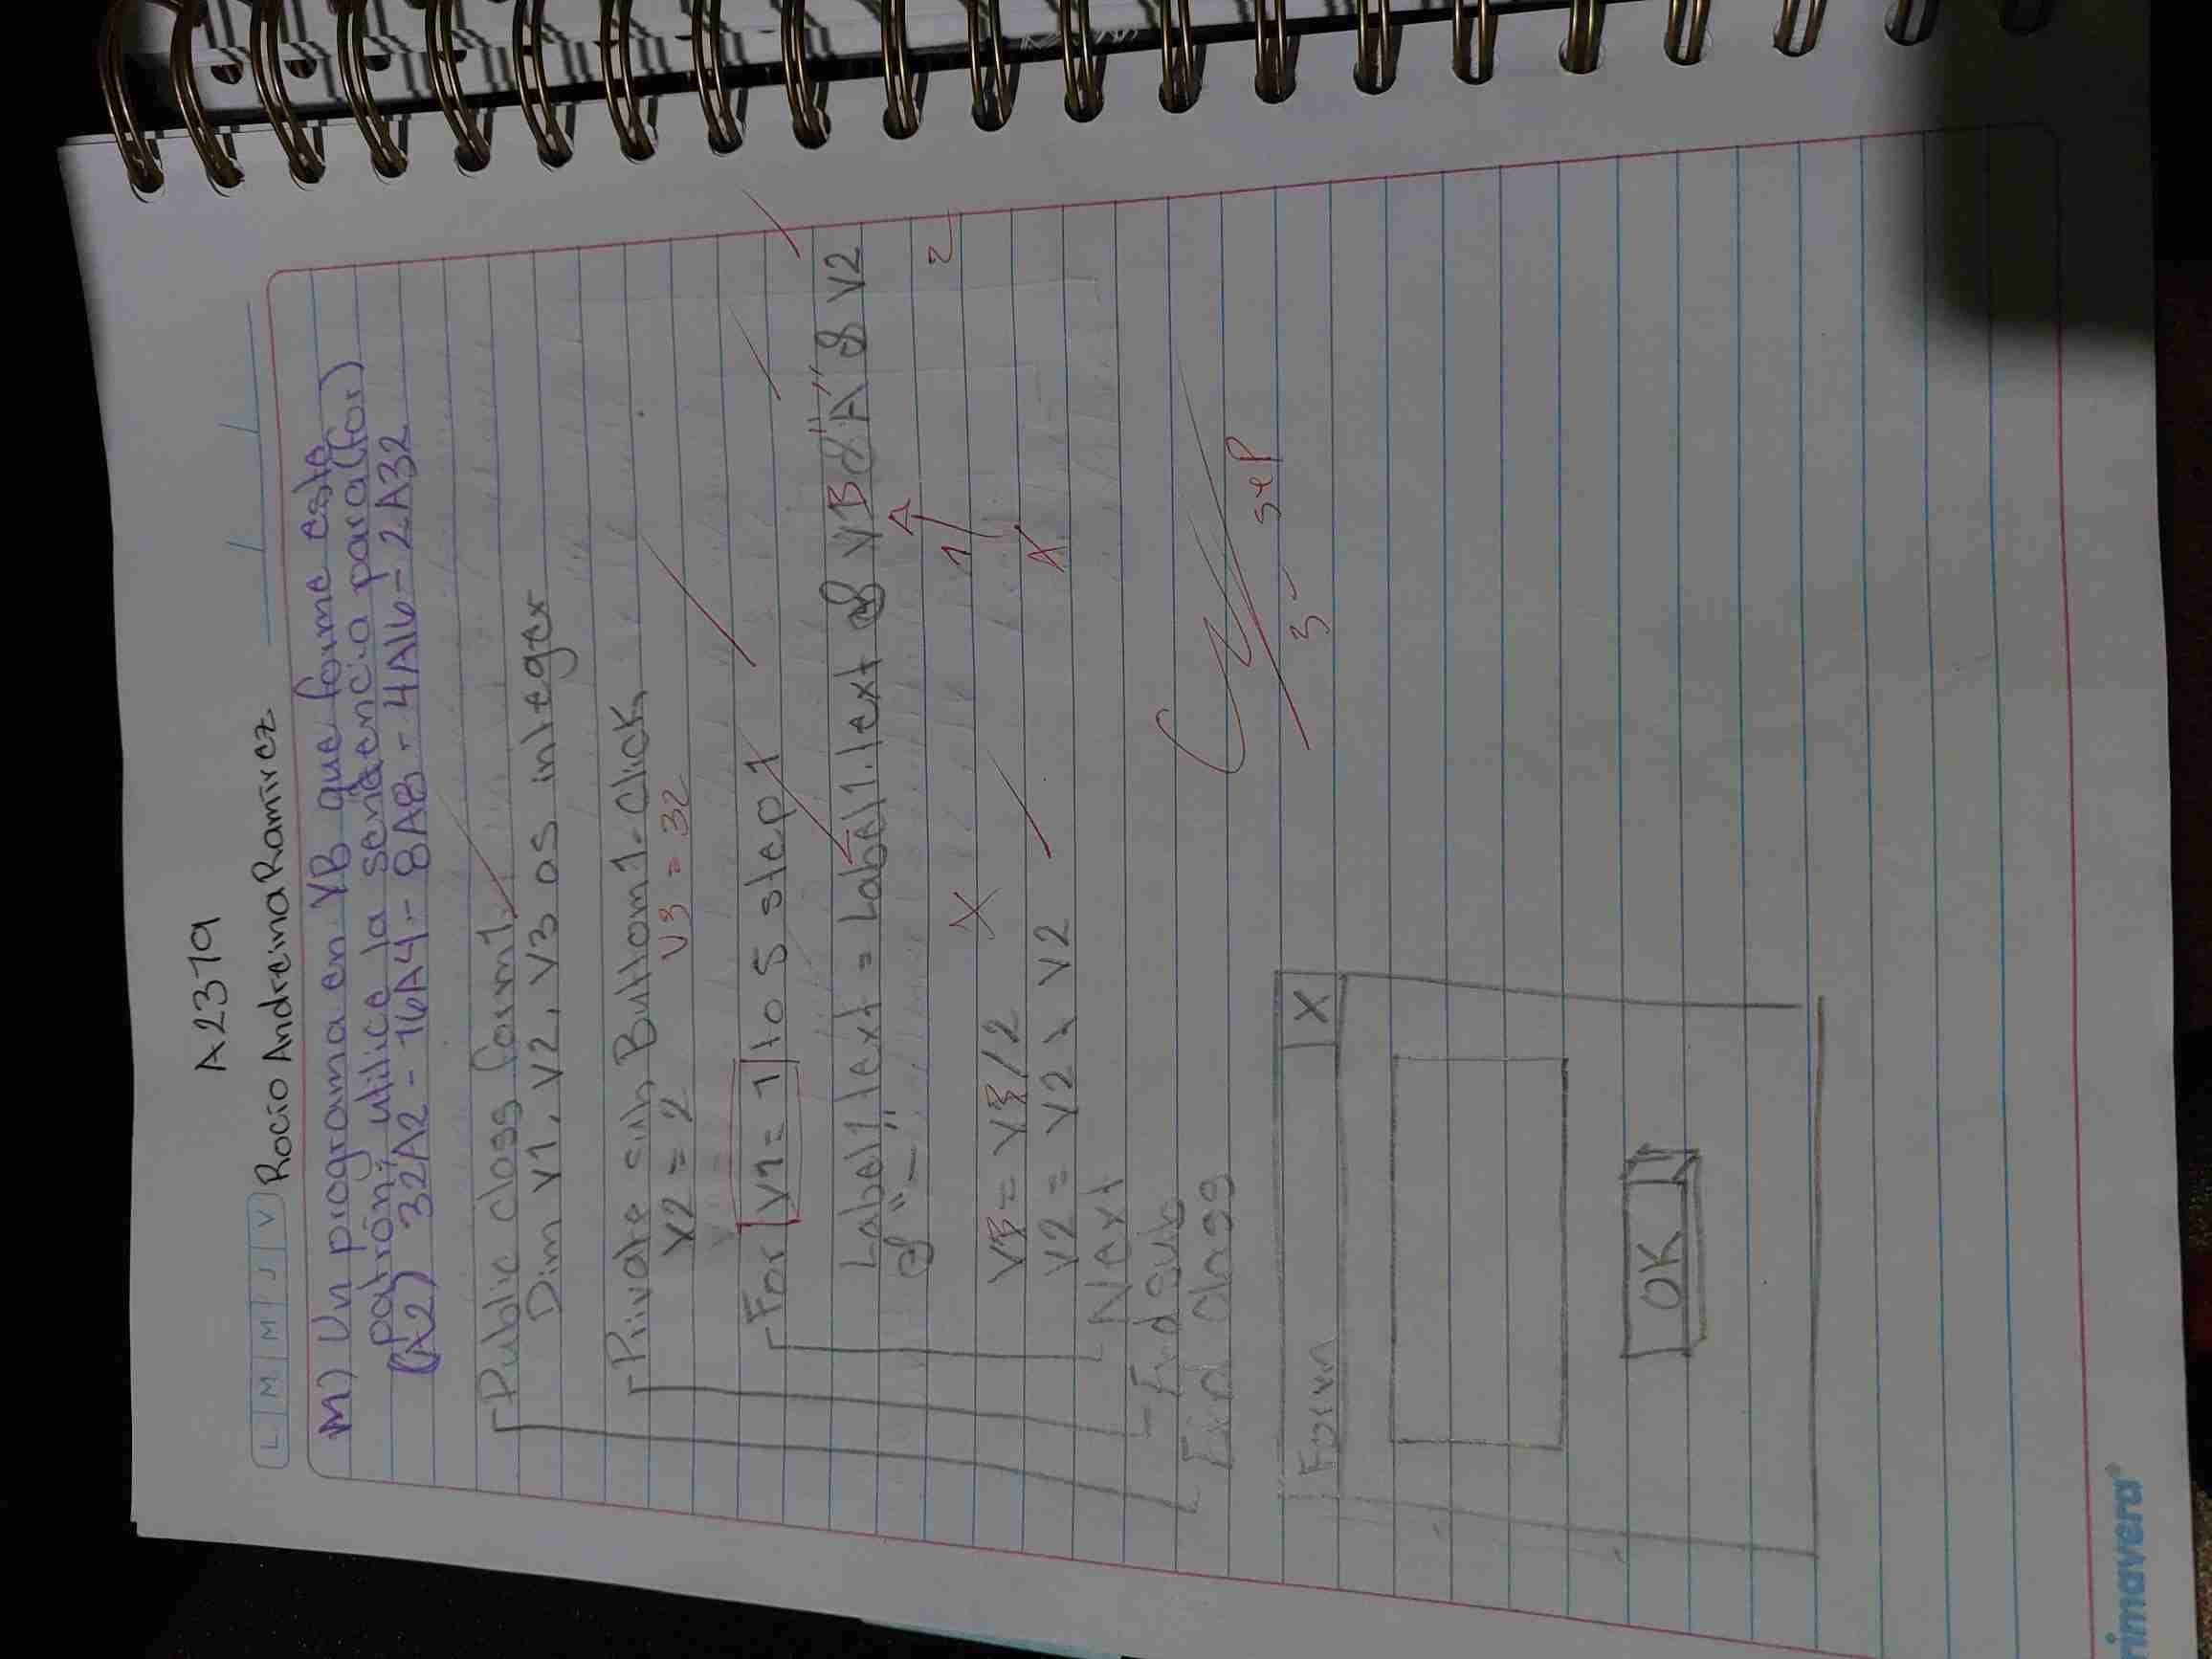 A2379
L M M J V Rocío Andreina Ramírez
M) Un programa en VB que forme este
patrón; utilice la sentencia para (for)
(A2) 32A2 - 16A4 - 8A8 - 4A16 - 2A32
Public class form1
Dim V1, V2, V3 as integer
Private sub Buttom1-Click
V3 = 32
X2 = 2
For V1 = 1 to 5 step 1
Label1 text = Label1.text & V3 & "A" & V2
& "-"
X
1
2
V3 = V3/2
V2 = V2 \ V2
Next
End sub
End Class
3 - sep
Form X
OK
rimavera